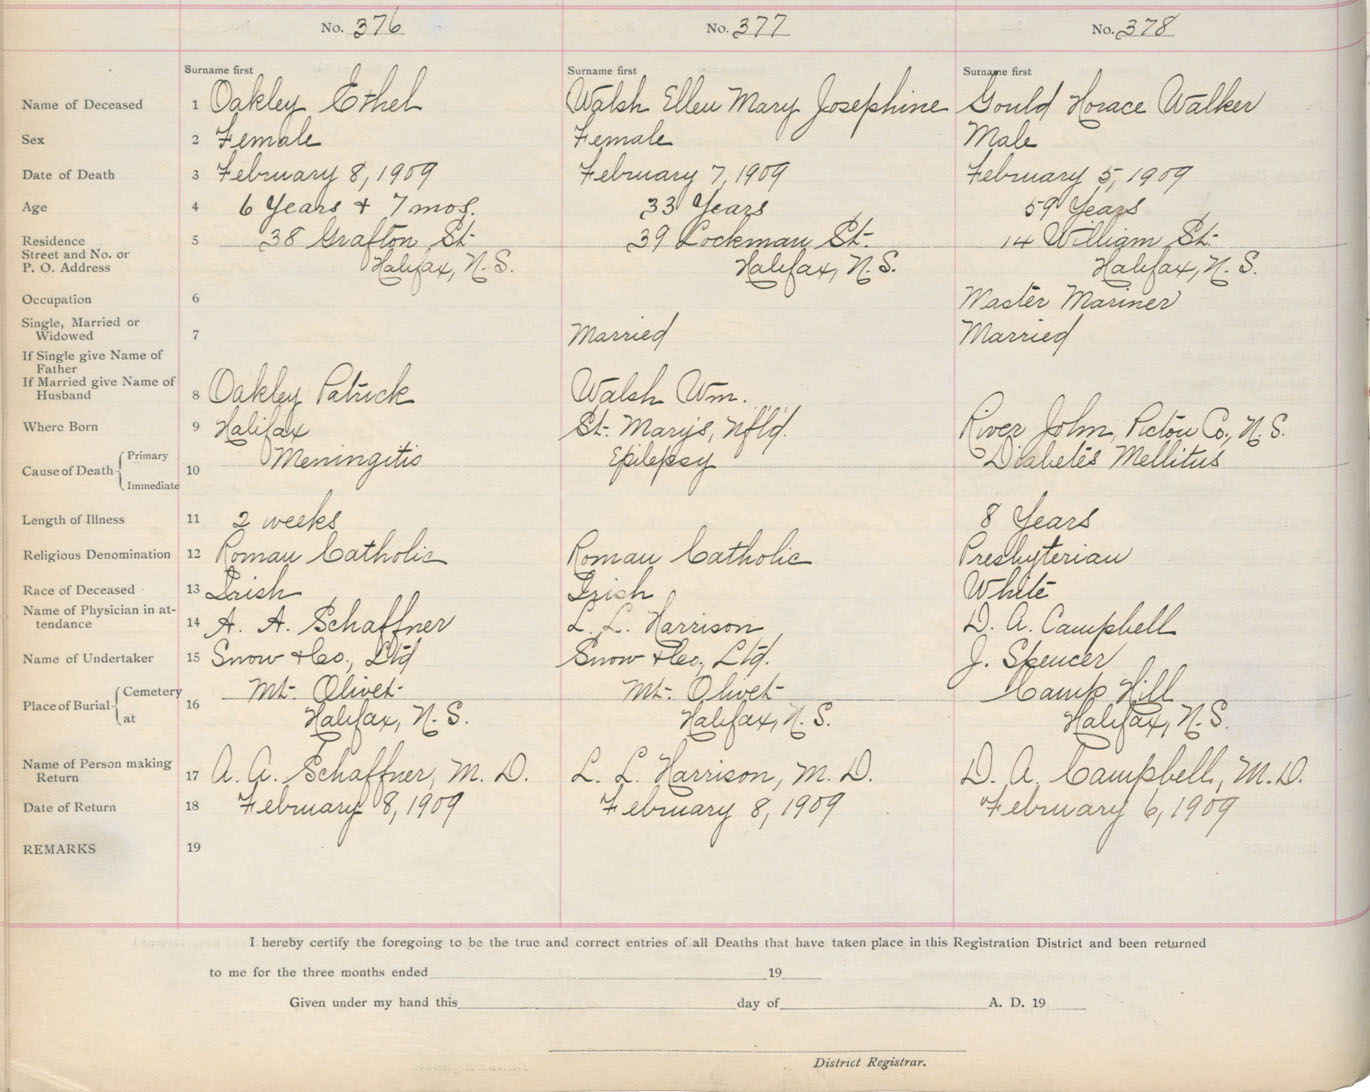 No. 376 No. 377 No. 378
Surname first Surname first Surname first
Name of Deceased 1 Oakley Ethel Walsh Ellen Mary Josephine Gould Horace Walker
Sex 2 Female Female Male
Date of Death 3 February 8, 1909 February 7, 1909 February 5, 1909
Age 4 6 Years + 7 mos. 33 Years 59 Years
Residence 5 38 Grafton St. 39 Lockman St. 14 William St.
Street and No. or
P. O. Address Halifax, N. S. Halifax, N. S. Halifax, N. S.
Occupation 6 Master Mariner
Single, Married or
Widowed 7 Married Married
If Single give Name of
Father
If Married give Name of
Husband 8 Oakley Patrick Walsh Wm.
Where Born 9 Halifax St. Marys, Nfld. River John, Pictou Co., N. S.
Primary Meningitis Epilepsy Diabetes Mellitus
Cause of Death 10
Immediate
Length of Illness 11 2 weeks 8 Years
Religious Denomination 12 Roman Catholic Roman Catholic Presbyterian
Race of Deceased 13 Irish Irish White
Name of Physician in at-
tendance 14 A. A. Schaffner L. L. Harrison D. A. Campbell
Name of Undertaker 15 Snow & Co., Ltd Snow & Co., Ltd. J. Spencer
Cemetery Mt. Olivet Mt. Olivet Camp Hill
Place of Burial 16
at Halifax, N. S. Halifax, N. S. Halifax, N. S.
Name of Person making
Return 17 A. A. Schaffner, M. D. L. L. Harrison, M. D. D. A. Campbell, M. D.
Date of Return 18 February 8, 1909 February 8, 1909 February 6, 1909
REMARKS 19
I hereby certify the foregoing to be the true and correct entries of all Deaths that have taken place in this Registration District and been returned
to me for the three months ended 19
Given under my hand this day of A. D. 19
District Registrar.